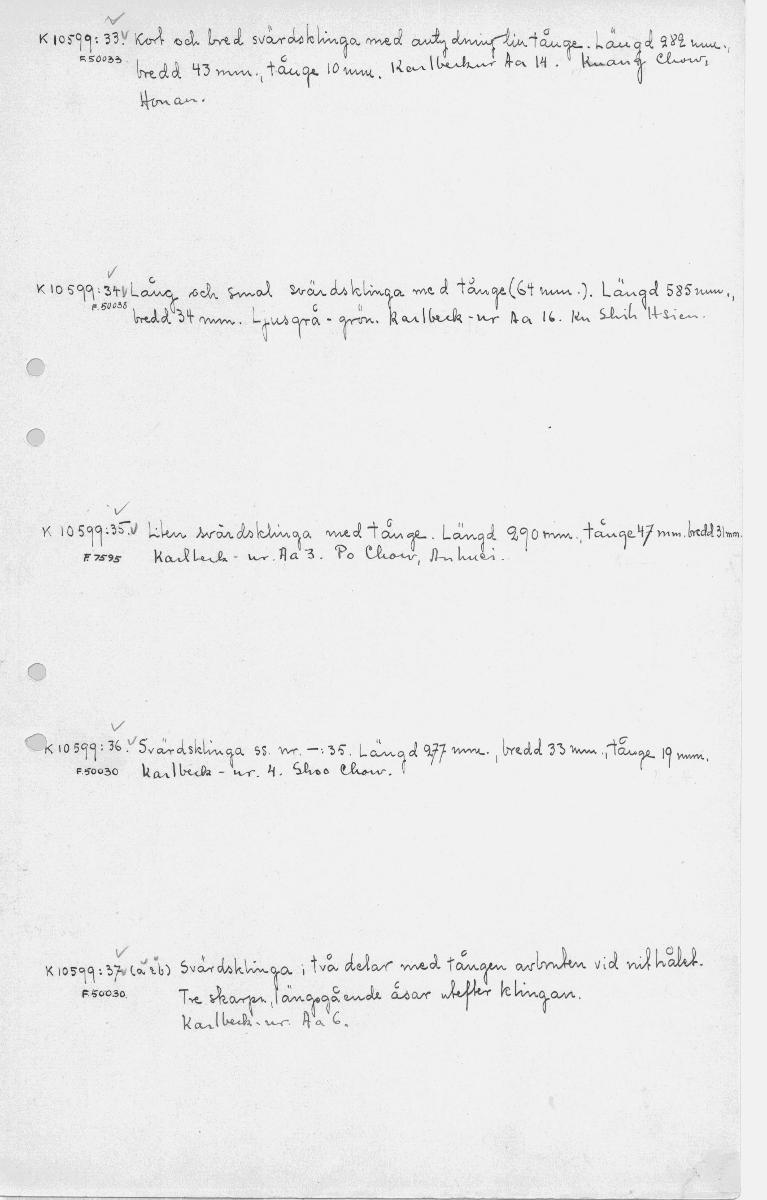 K 10599:33. Kort och bred svärdsklinga med antydning till tånge. Längd 282 mm.,
F.50033 bredd 43 mm., tånge 10 mm. Karlbecknr Aa 14. Kuang Chow,
Honan.
K 10599:34 Lång och smal svärdsklinga med tånge (64 mm.). Längd 585 mm.,
F.50038 bredd 34 mm. Ljusgrå-grön. Karlbeck-nr Aa 16. Ku Shih Hsien.
K 10599:35. Liten svärdsklinga med tånge. Längd 290 mm., tånge 47 mm. bredd 31 mm.
F.7595 Karlbeck-nr. Aa 3. Po Chow, Anhuei.
K 10599:36. Svärdsklinga ss. nr. –:35. Längd 277 mm., bredd 33 mm., tånge 19 mm.
F.50030 Karlbeck-nr. 4. Shoo Chow.
K 10599:37 (a & b) Svärdsklinga i två delar med tången avbruten vid nithålet.
F.50030. Tre skarpa, längsgående åsar utefter klingan.
Karlbeck-nr. Aa 6.